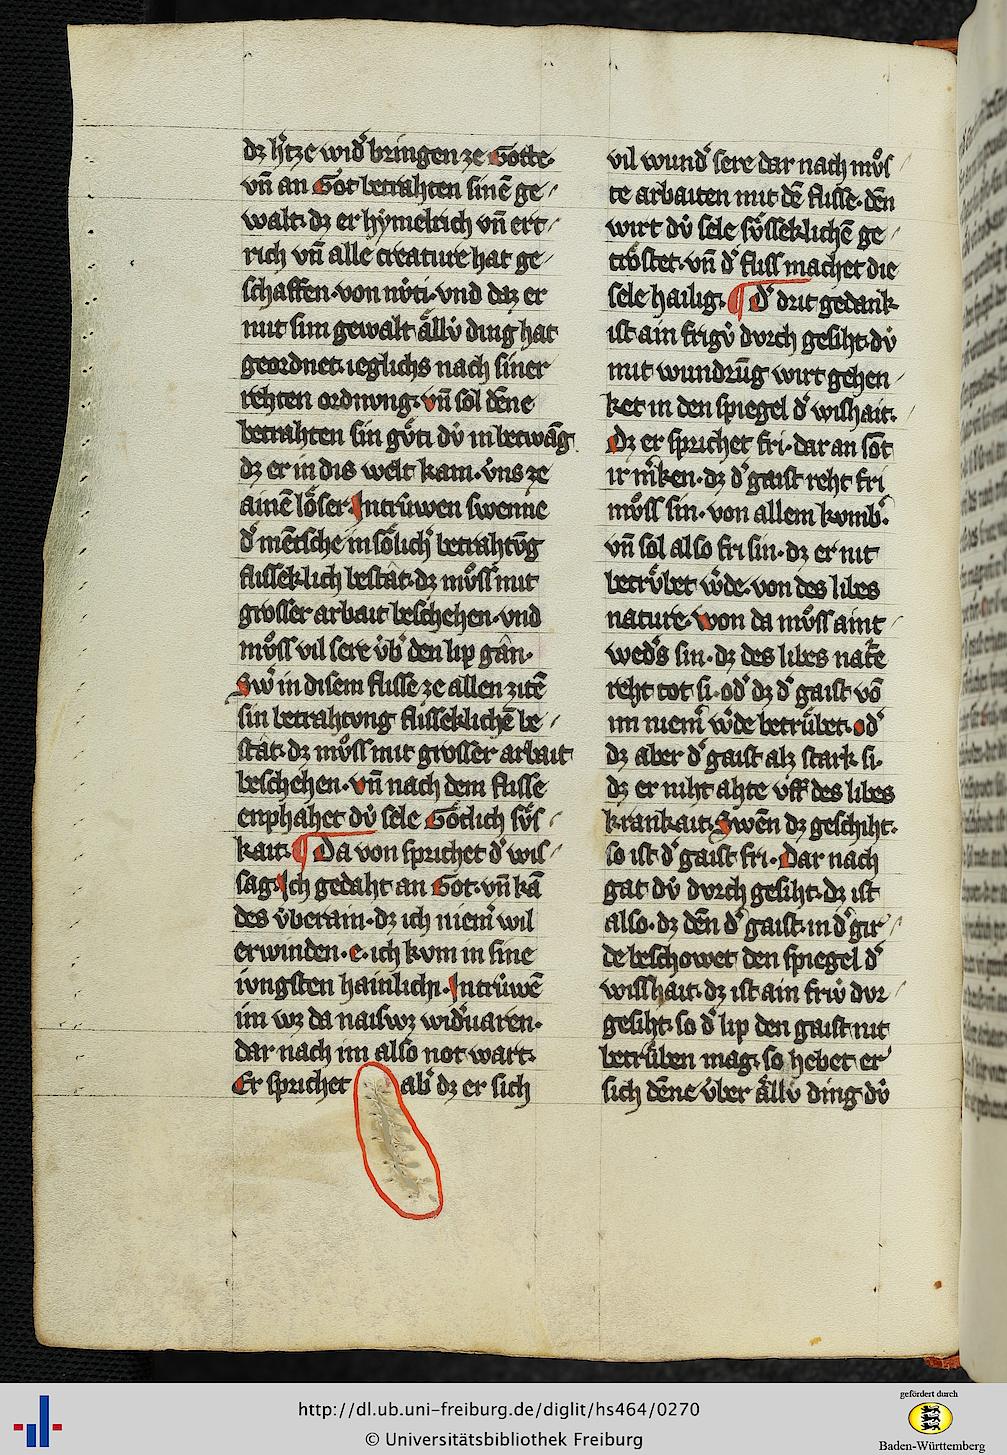 dz h'tze wid' bringen ze Gotte.
vn̄ an Got betrahten sinē ge
walt. dz er hẏmelrich vn̄ ert
rich vn̄ alle creature hat ge
schaffen. von nv̊ti. vnd daz er
mit sim gewalt ällv̇ ding hat
geordnet. ieglichs nach siner
rehten ordnvng. vn̄ sol dēne
betrahten sin gv̊ti dv̇ in betwāg
dz er in dis welt kam. v̇ns ze
ainē lo̊ser. Intrv̇wen swenne
d' mētsche in sölich' betrahtv̄g
flisseklich bestât. dz mv̊ss mit
grosser arbait beschehen. vnd
mv̊ss vil sere v̇b' den lip gân.
Sw' in disem flisse ze allen zitē
sin betrahtvng flisseklichē be
stât. dz mv̊ss mit grosser arbait
beschehen. vn̄ nach dem flisse
enphahet dv̇ sele Götlich sv̊s
kait. ¶ Da von sprichet d' wis
sag. Ich gedaht an Got. vn̄ kā
des v̇berain. dz ich niem' wil
erwinden. e. ich kvm in sine
ivngsten hainlichi. Intrv̇wē
im wz da naiswz wid'uaren.
dar nach im also not wart.
Er sprichet ab' dz er sich
vil wund' sere dar nach mv̊s
te arbaiten mit dē flisse. den
wirt dv̇ sele sv̊sseklichē ge
tröstet. vn̄ d' fliss machet die
sele hailig. ¶ D' drit gedank
ist ain frigv̇ dvrch gesiht. dv̇
mit wundrūg wirt gehen
ket in den spiegel d' wishait.
Dz er sprichet fri. dar an sŏt
ir m'ken. dz d' gaist reht fri
mv̊ss sin. von allem kvmb'.
vn̄ sol also fri sin. dz er nit
betrv̊bet w'de. von des libes
nature. won da mv̊ss aint
wed's sin. dz des libes nat'e
reht tot si. od' dz d' gaist vō
im niem' w'de betrv̊bet. od'
dz aber d' gaist alz stark si.
dz er niht ahte vff des libes
krankait. Swēn dz geschiht.
so ist d' gaist fri. Dar nach
gat dv̇ dvrch gesiht. dz ist
also. dz dēn d' gaist. in d' gir
de beschowet den spiegel d'
wisshait. dz ist ain friv̇ dvr
gesiht. so d' lip den gaist nit
betrv̊ben mag. so hebet er
sich dēne v̇ber ällv̇ ding dv̇
http://dl.ub.uni-freiburg.de/diglit/hs464/0270
© Universitätsbibliothek Freiburg
gefördert durch
Baden-Württemberg